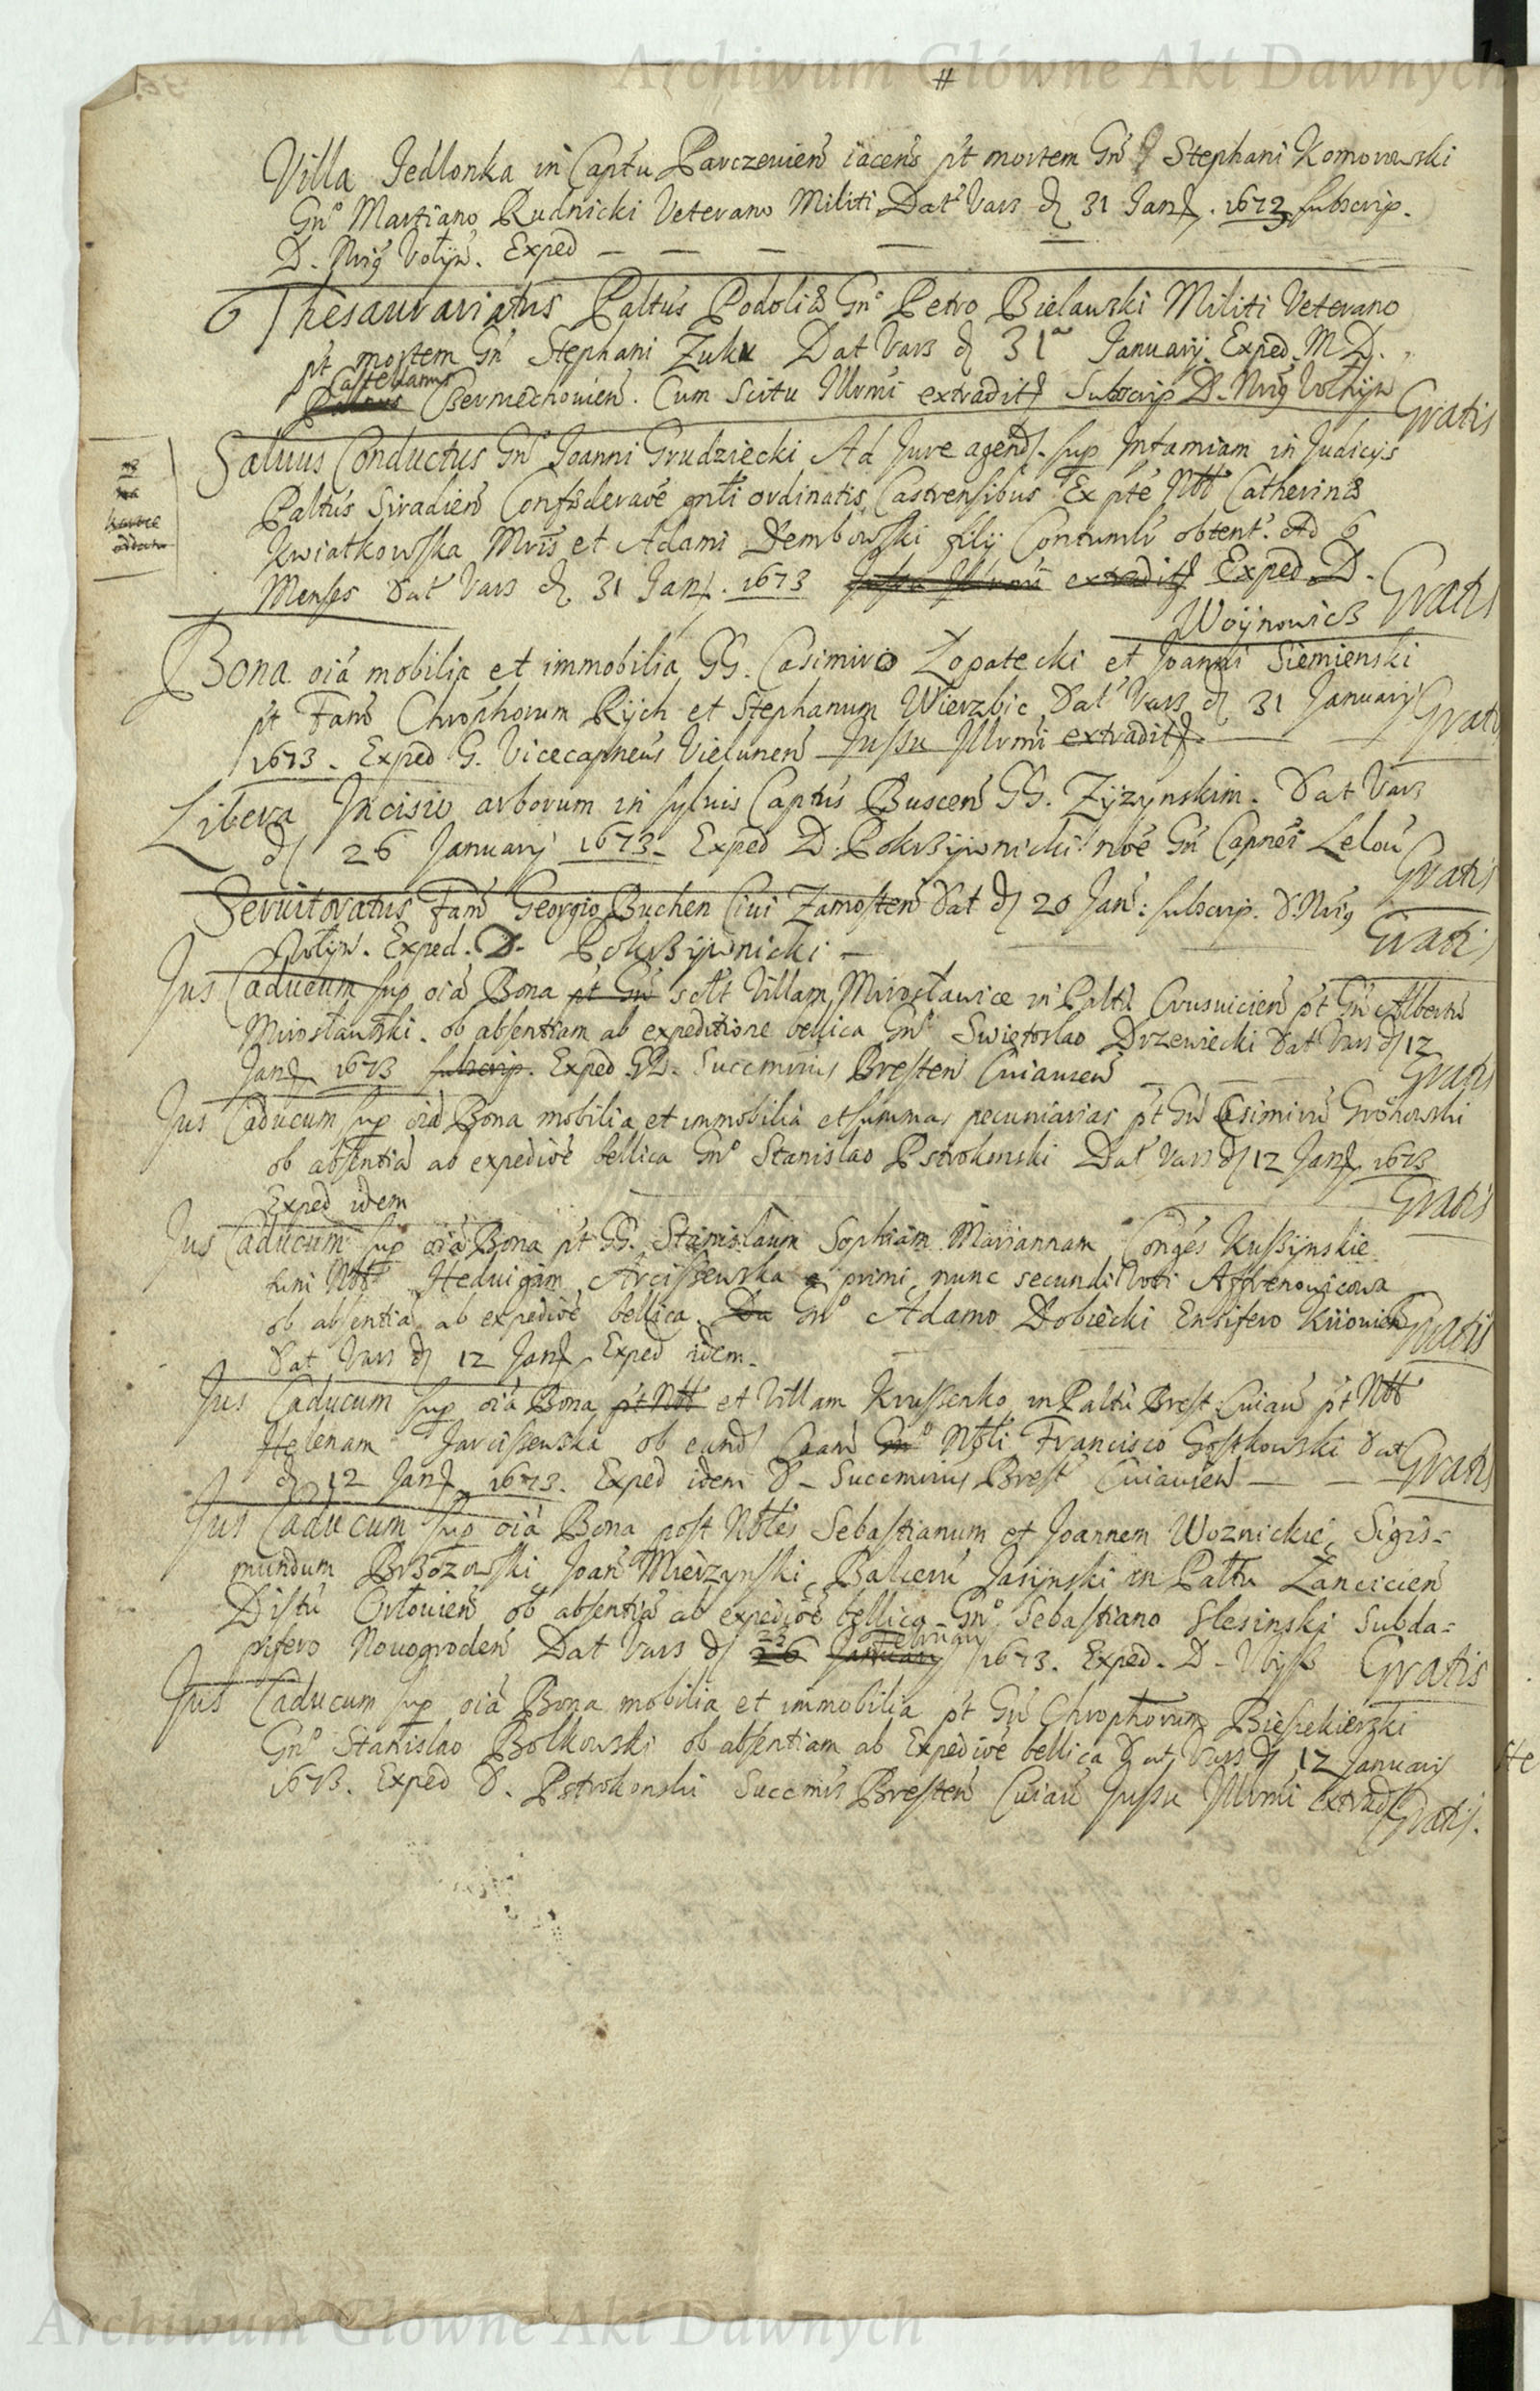 Archiwum Główne Akt Dawnych
#
Villa Jedlonka in Captu Parczeuien iacens pt mortem Gn Stephani Komorowski
Gno Martiano Rudnicki Veterano Militi Dat Vars d 31 Jan. 1673 subscrip.
D. Nrig Volyn. Exped
6 Thesaurariatus Paltus Podoliæ Gno Petro Bielawski Militi Veterano
pt mortem Gn Stephani Zuk Dat Vars d 31 January. Exped. M D.
Castellanus
Czerniechouien. Cum Scitu Illrmi extradit Subscrip D. Nrig Volhyn Gratis
Saluus Conductus Gn Joanni Grudziecki Ad Jure agend. sup Infamiam in Judicijs
na
kartce
oddano
Paltus Siradien Confæderaoe gnli ordinatis Castrensibus Ex pte Nbb Catherinæ
Kwiatkowska Mris et Adami Dembowski filij Contumli obtent. Ad 6
Menses Dat Vars d 31 Jan. 1673 Jussu Illrmi extradit Exped. D. Gratis
Woynowicz
Bona oia mobilia et immobilia GG. Casimiro Lopatecki et Joanni Siemienski
pt Fam Chrophorum Rych et Stephanum Wierzbic Dat Vars d 31 January Gratis
1673. Exped G. Vicecapneus Vielunen Jussu Illrmi extradit.
Libera Incisio arborum in syluis Captus Buscen GG. Zyzynskim. Dat Vars
d 26 January 1673. Exped D. Pokrzywnicki noe Gn Capnei Lelou Gratis
Seruitoratus Fam Georgio Buchen Ciui Zamosten Dat d 20 Jan: subscrip. D. Nrig Gratis
Volyn. Exped. D. Pokrzywnicki
Jus Caducum sup oia Bona pt Gn sclt Villam Mirosławice in Paltu Crusuicien pt Gn Albertu
Mirosławski. ob absentiam ab expeditione bellica Gno Swiętosłao Drzewiecki Dat Vars d 12
Jan 1673 subscrip. Exped GD. Succmrius Bresten Cuiauien Gratis
Jus Caducum sup oia Bona mobilia et immobilia et summas pecuniarias pt Gn Casimiru Grohowski
ob absentia ab expedioe bellica Gno Stanislao Pstrokonski Dat Vars d 12 Jan 1673
Exped idem Gratis
Jus Caducum sup oia Bona pt GG. Stanislaum Sophiam Mariannam Conges Kuszynskie
tum Nbb Heduigam Arciszewska primi nunc secundi Voti
ob absentia ab expedioe bellica. Da Gno Adamo Dobiecki Ensifero Kiiouien Gratis
Dat Vars d 12 Jan. Exped idem.
Jus Caducum sup oia Bona pt Nbb et Villam Krussenko in Paltu Brest Cuiau pt Nbb
Helenam Jarciszewska ob eand Caam Gno Nbli Francisco Gostkowski Dat Gratis
d 12 Jan 1673. Exped idem D. Succmrius Brest Cuiauien
Jus Caducum sup oia Bona post Nbles Sebastianum et Joannem Woznickie, Sigis-
mundum Brzozowski Joan Mierzynski, Balceru Jasynski in Paltu Lancicien
Distu Orlouien ob absentia ab expedioe bellica Gno Sebastiano Slesinski Subda-
23 February
pifero Nouogroden Dat Vars d 26 January 1673. Exped. D. Gratis
Jus Caducum sup oia Bona mobilia et immobilia pt Gn Chrophorum Biesiekierzki
Gno Stanislao Bolkowski ob absentiam ab Expedioe bellica Dat Vars d 12 January
1673. Exped D. Pstrokonski Succmris Bresten Cuiau Jussu Illrmi extrad Gratis.
Archiwum Główne Akt Dawnych